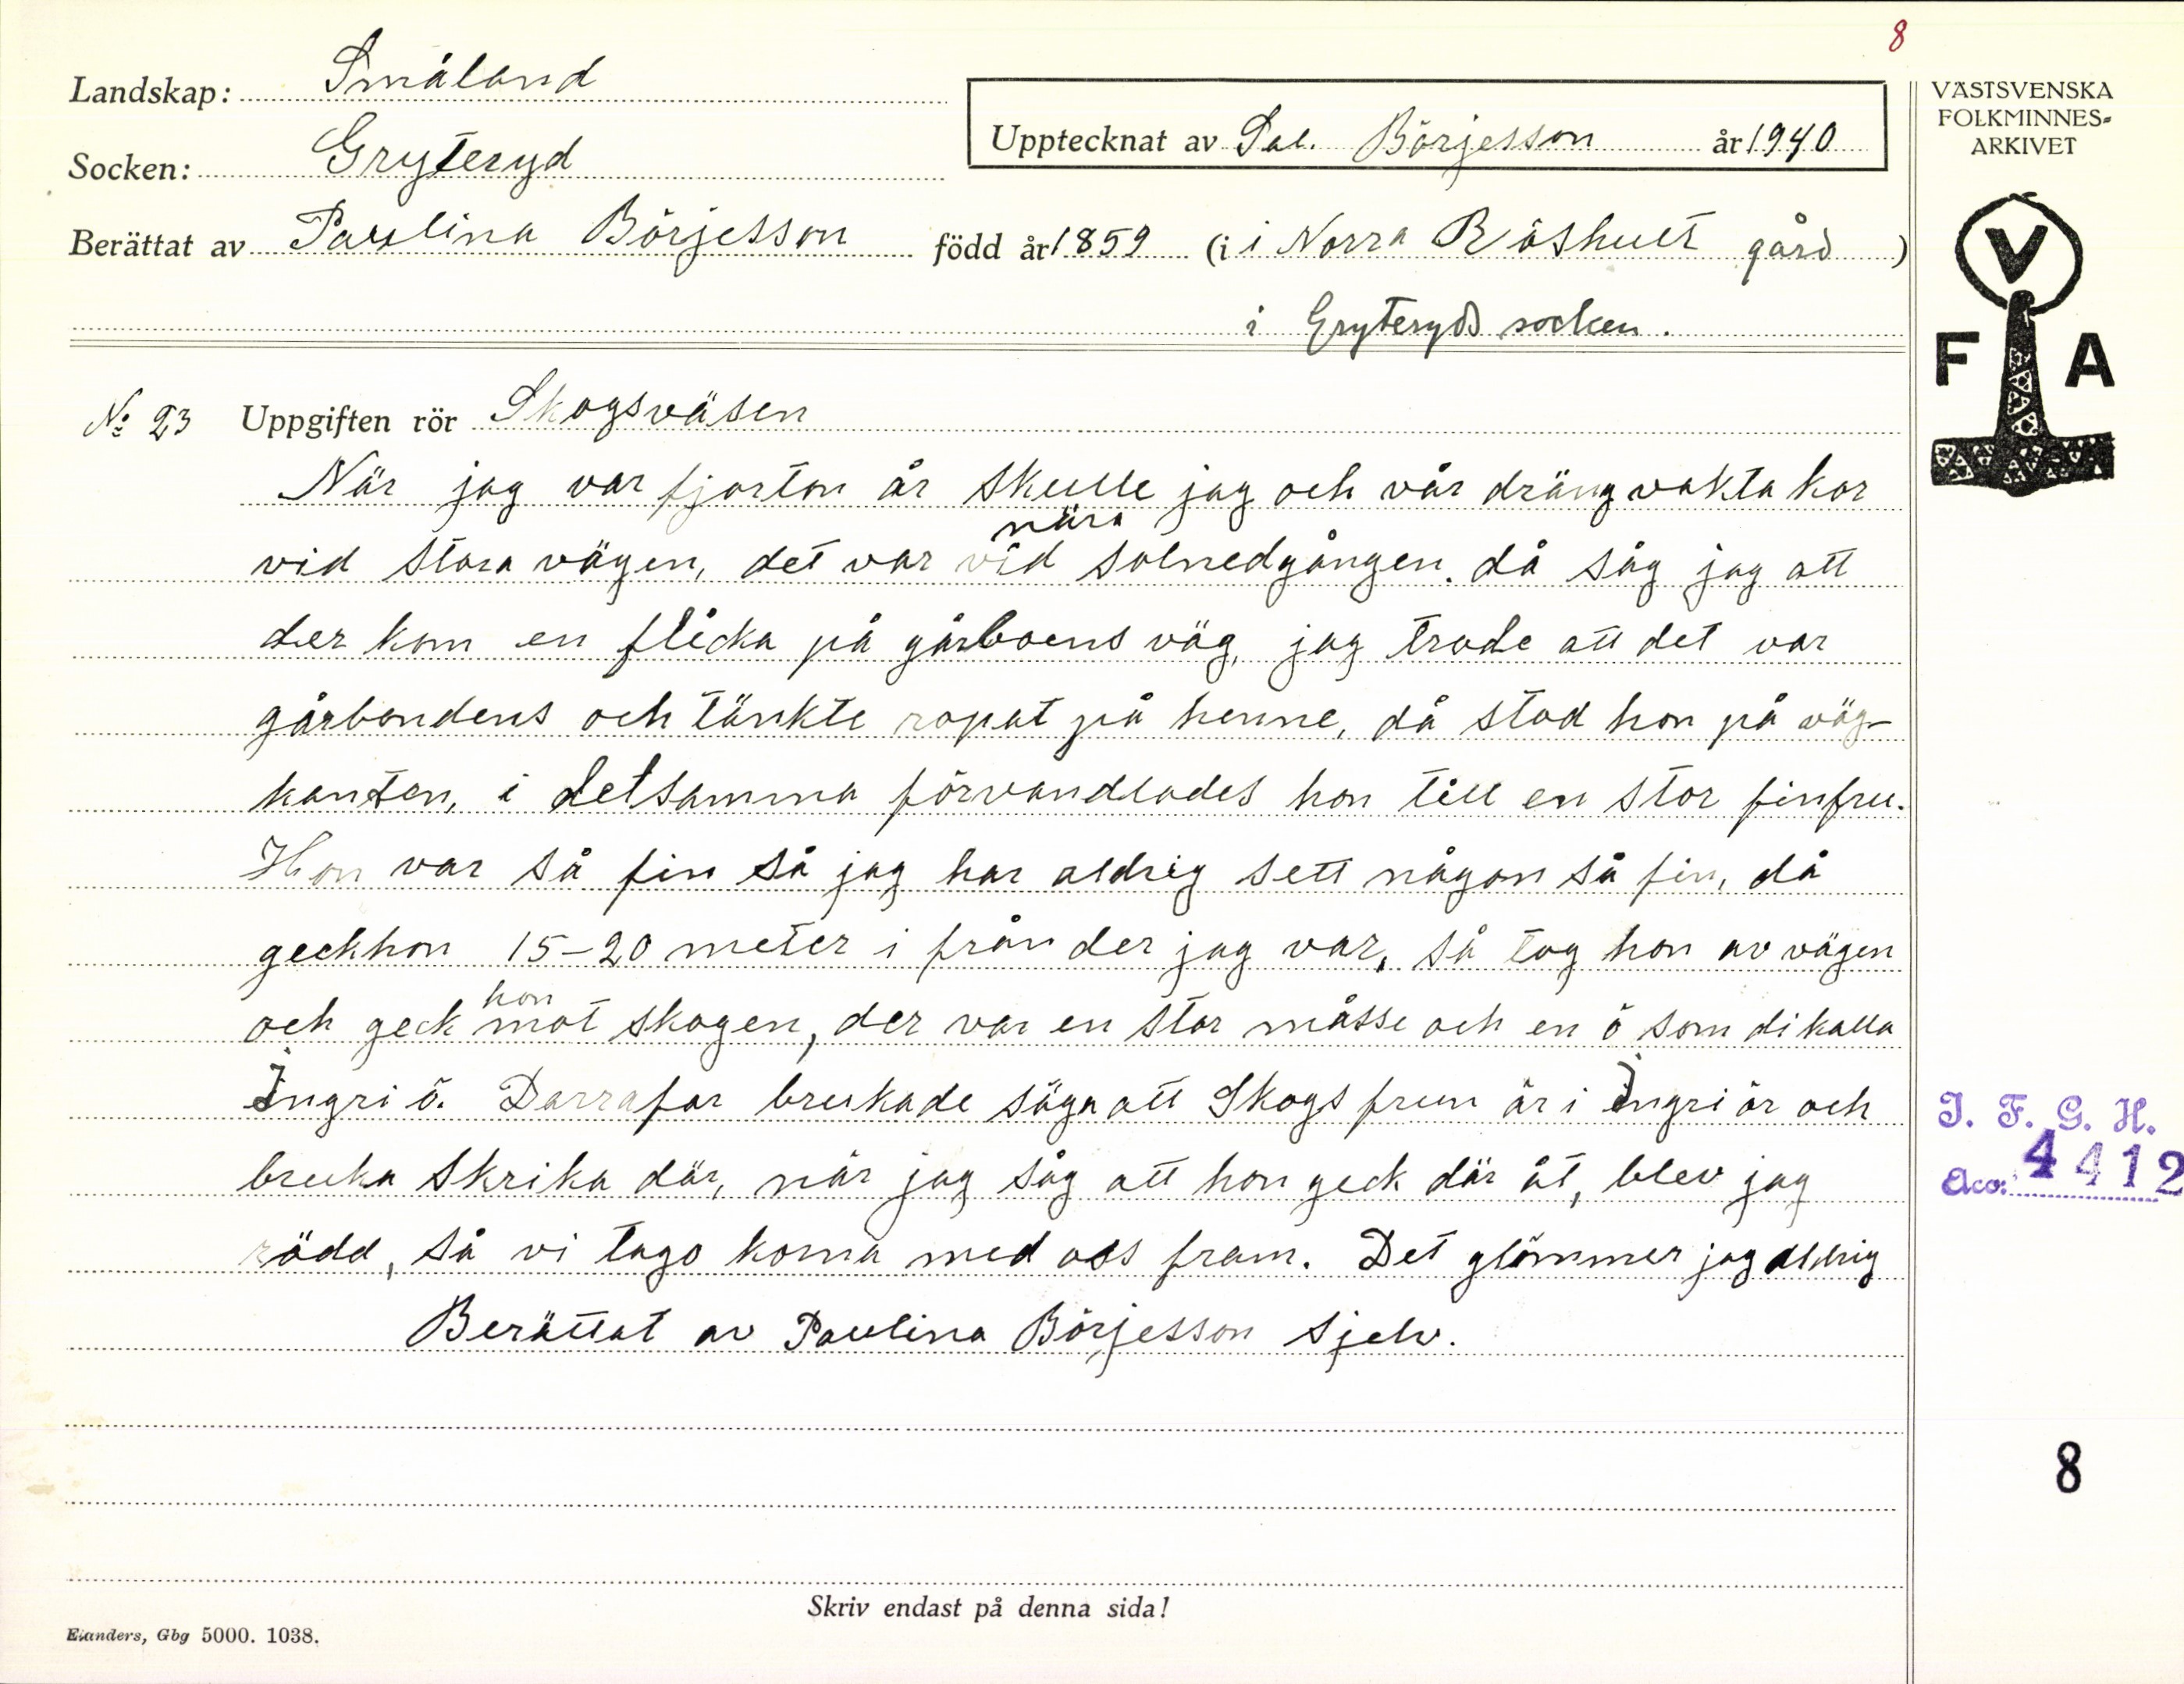 8
Landskap: Småland
Socken: Gryteryd
Upptecknat av Sal. Börjesson år 1940
Berättat av Paulina Börjesson född år 1859 (i i Norra Råshult gård)
i Gryteryds socken.
VÄSTSVENSKA
FOLKMINNES-
ARKIVET
V
F A
No 23 Uppgiften rör Skogsväsen
När jag var fjorton år skulle jag och vår dräng vakta kor
nära
vid stora vägen, det var vid solnedgången. då såg jag att
der kom en flicka på gårboens väg, jag trode att det var
gårbondens och tänkte ropat på henne, då stod hon på väg-
kanten, i detsamma förvandlades hon till en stor finfru.
Hon var så fin så jag har aldrig sett någon så fin, då
geck hon 15-20 meter i från der jag var, så tog hon av vägen
hon
och geck mot skogen, der var en stor måsse och en ö som di kalla
Ingri ö. Darrafar brukade säga att Skogsfrun är i Ingri ör och
bruka skrika där, när jag såg att hon geck där åt, blev jag
rädd, så vi togo korna med oss fram. Det glömmer jag aldrig
Berättat av Paulina Börjesson sjelv.
I. F. G. H.
Acc: 4412
8
Skriv endast på denna sida!
Elanders, Gbg 5000. 1038.